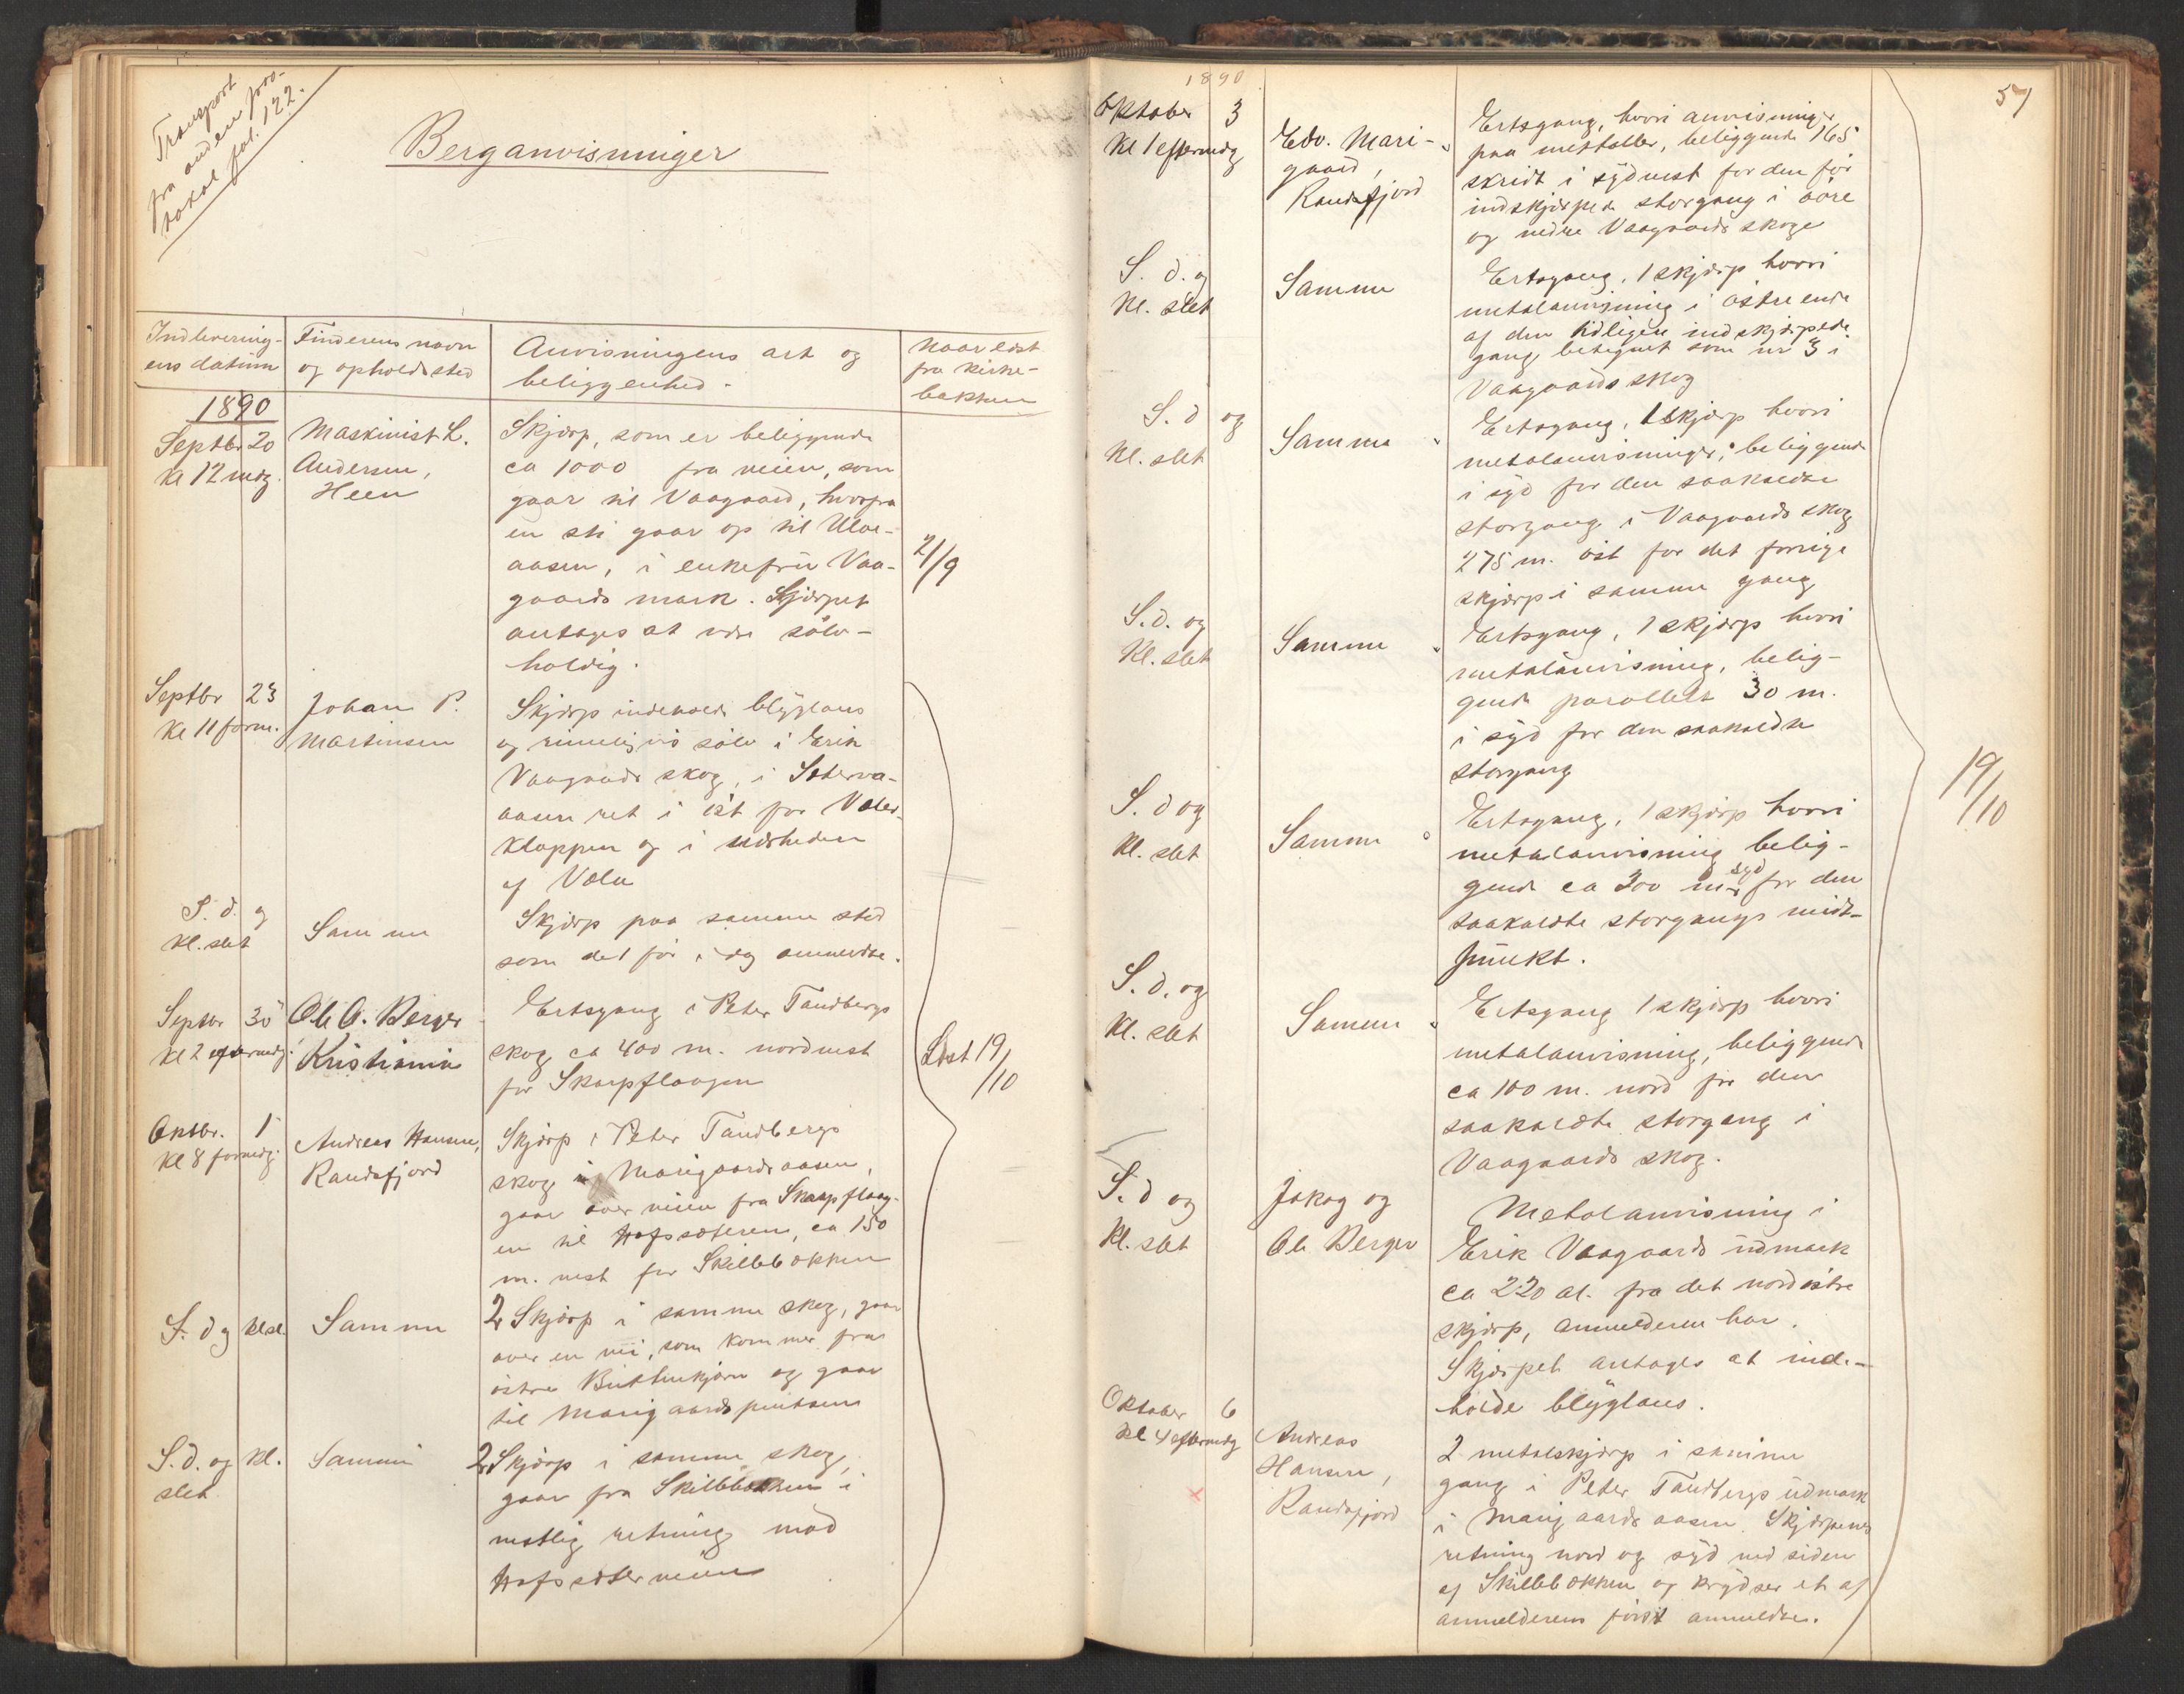 Transport
fra anden pro-
tokol fol. 122.
Berganvisninger
Indlevering-
ens datum
Finderens navn
og opholdssted
Anvisningens art og
beliggenhed.
Naar læst
fra kirke-
bakken
1890
Septbr 20
Kl 12 mdg.
Maskinist L.
Andersen,
Heen
Skjærp, som er beliggende
ca 1000 fra veien, som
gaar til Vaagaard, hvorfra
en sti gaar op til Ulve-
aasen, i enkefru Vaa-
gaards mark. Skjærpet
antages at være sølv-
holdig.
21/9
Septbr 23
Kl 11 form.
Johan P.
Martinsen
Skjærp indehold. blyglans
og rimeligvis sølv i Erik
Vaagaards skog, i Sæterva-
aasen ret i øst for Væler-
kloppen og i nærheden
af Væla
S. d. og
Kl. slet
Samme
Skjærp paa samme sted
som det før i dag anmeldte.
Septbr 30
Kl 2 eftermdg.
Ole O. Berger
Kristiania
Ertsgang i Peter Tandbergs
skog ca 400 m. nordvest
for Skarpflaagen
Læst 19/10
Oktbr. 1
Kl 8 formdg.
Andreas Hansen,
Randsfjord
Skjærp i Peter Tandbergs
skog i Marigaardsaasen,
gaar over veien fra Skarpflaag-
en til Hofssæteren, ca 150
m. vest for Skillebækken
S. d og kl sl.
Samme
2 Skjærp i samme skog, gaar
over en vei, som kommer fra
østre Buttenkjern og gaar
til Marigaardsputten
S. d. og kl.
slet
Samme
2 Skjærp i samme skog,
gaar fra Skillebækken i
vestlig retning mod
Hofssæterveien
57
1890
Oktober 3
Kl 1 eftermdg
Edv. Mari-
gaard,
Randsfjord
Ertsgang, hvori anvisninger
paa mettaller, beliggende 165
skridt i sydvest for den før
indskjærpede storgang i øvre
og nedre Vaagaards skoge
S. d. og
Kl. slet
Samme
Ertsgang, 1 skjærp hvori
metalanvisning i østre ende
af den tidligere indskjærpede
gang, betegnet som nr 3 i
Vaagaards skog
S. d og
Kl. slet
Samme
Ertsgang, 1 skjærp hvori
metalanvisninger, beliggende
i syd for den saakaldte
storgang i Vaagaards skog
275 m. øst for det forrige
skjærp i samme gang
S. d. og
Kl. slet
Samme
Ertsgang, 1 skjærp hvori
metalanvisning, belig-
gende parallelt 30 m.
i syd for den saakaldte
storgang
S. d og
Kl. slet
Samme
Ertsgang, 1 skjærp hvori
metalanvisning belig-
gende ca 300 m. syd for den
saakaldte storgangs midt-
punkt.
19/10
S. d. og
Kl. slet
Samme
Ertsgang 1 skjærp hvori
metalanvisning, beliggende
ca 100 m. nord for den
saakaldte storgang i
Vaagaards skog.
S. d og
Kl. slet
Jakog og
Ole Berger
Metalanvisning i
Erik Vaagaards udmark
ca 220 al. fra det nordøstre
skjærp, anmelderen har.
Skjærpet antages at inde-
holde blyglans.
Oktober 6
Kl 4 eftermdg
Andreas
Hansen,
Randsfjord
2 metalskjærp i samme
gang i Peter Tandbergs udmark
i Marigaardsaasen. Skjærpenes
retning nord og syd ved siden
af Skillebækken og krydser et af
anmelderens først anmeldte.